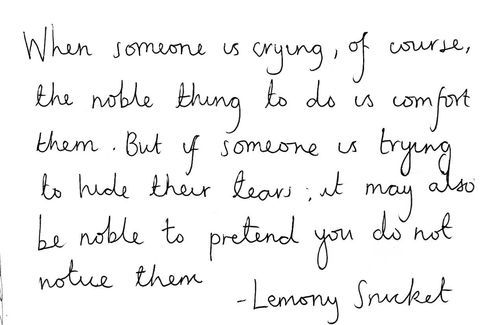 When someone is crying, of course,
the noble thing to do is comfort
them. But if someone is trying
to hide their tears, it may also
be noble to pretend you do not
notice them
-Lemony Snicket